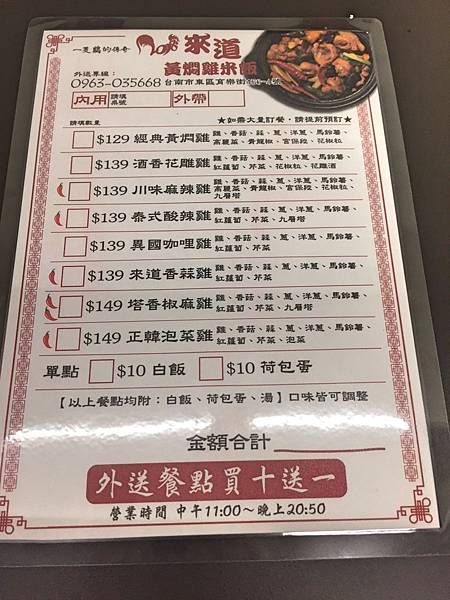 一隻雞的傳奇
來道
黃燜雞米飯
外送專線：
0963-035668 台南市東區育樂街
內用 請填桌號 外帶
請填數量 ★如需大量訂餐，請提前預訂★
$129 經典黃燜雞 雞、香菇、蒜、蔥、洋蔥、馬鈴薯、
高麗菜、青龍椒、宮保段、花椒粒
$139 酒香花雕雞 雞、香菇、蒜、蔥、洋蔥、馬鈴薯、
紅蘿蔔、芹菜、花椒粒、花雕酒
$139 川味麻辣雞 雞、香菇、蒜、蔥、洋蔥、馬鈴薯、
高麗菜、青龍椒、宮保段、花椒粒、
九層塔
$139 泰式酸辣雞 雞、香菇、蒜、蔥、洋蔥、馬鈴薯、
紅蘿蔔、芹菜、九層塔
$139 異國咖哩雞 雞、香菇、蒜、蔥、洋蔥、馬鈴薯、
紅蘿蔔、芹菜
$139 來道香蒜雞 雞、香菇、蒜、蔥、洋蔥、馬鈴薯、
紅蘿蔔、芹菜
$149 塔香椒麻雞 雞、香菇、蒜、蔥、洋蔥、馬鈴薯、
紅蘿蔔、芹菜、九層塔
$149 正韓泡菜雞 雞、香菇、蒜、蔥、洋蔥、馬鈴薯、
紅蘿蔔、芹菜、泡菜
單點 $10 白飯 $10 荷包蛋
【以上餐點均附：白飯、荷包蛋、湯】口味皆可調整
金額合計
外送餐點買十送一
營業時間 中午11:00～晚上20:50